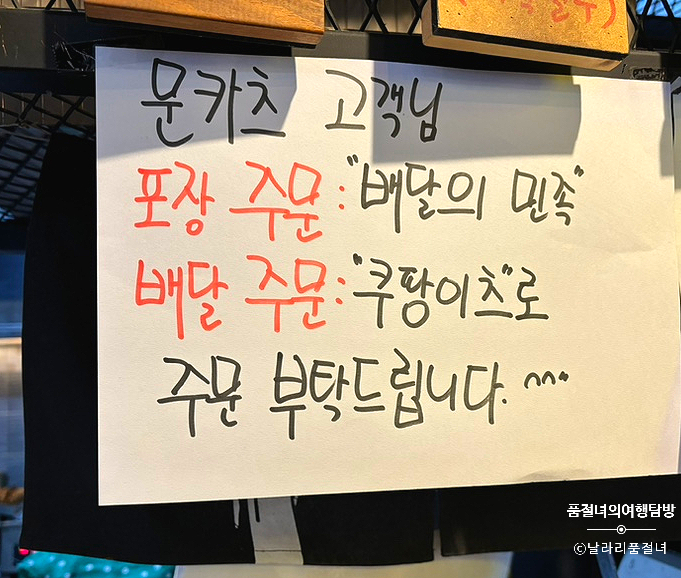 문카츠 고객님
포장 주문: "배달의 민족"
배달 주문: "쿠팡이츠"로
주문 부탁드립니다. ^^*
품절녀의여행탐방
ⓒ날라리품절녀